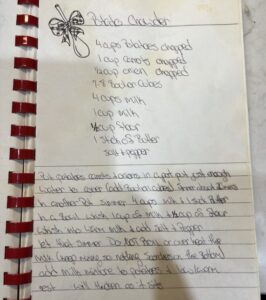 Potato Chowder
4 cups Potatoes chopped
1 cup carrots chopped
1/2 cup onion chopped
7-8 Boulor Cubes
4 cups milk
1 cup milk
1/2 cup flour
1 Stick of Butter
salt & pepper
Put potatoes carrots & onions in a pot put just enough
water to cover (add Boulion cubes) Simmer about
In another Pot simmer 4 cups milk & 1 stick Butter
In a Bowl whisk 1 cup of milk & 1/2 cup of flour
whisk into warm milk & add salt & Pepper
let that simmer. Do Not Brown or over heat the
milk keep moving so nothing on the Bottom
add milk mixture to potatoes & let
rest will thicken as it sits